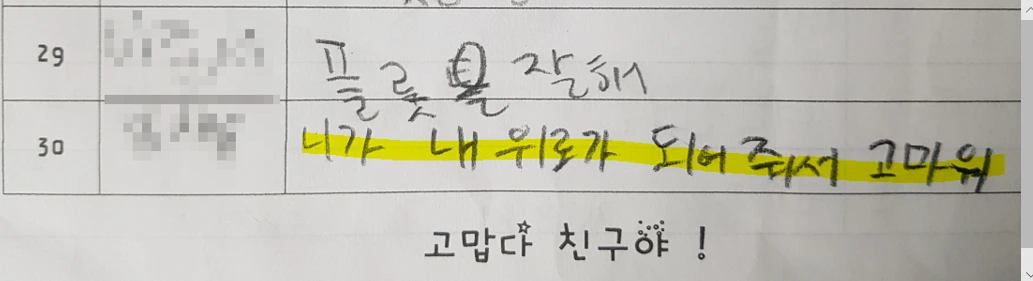 29 플룻을 잘해
30 니가 내 위로가 되어 줘서 고마워
고맙다 친구야 !